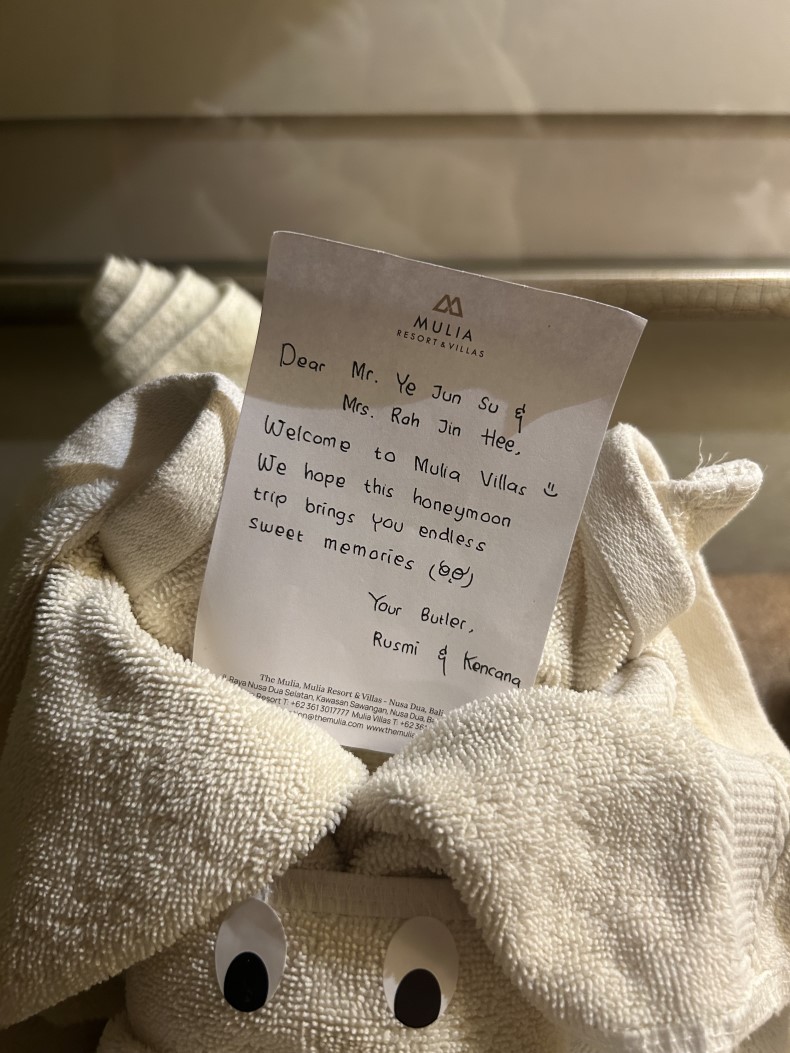 MULIA
RESORT & VILLAS
Dear Mr. Ye Jun Su &
Mrs. Roh Jin Hee,
Welcome to Mulia Villas
We hope this honeymoon
trip brings you endless
sweet memories
Your Butler,
Rusmi & Kencana
The Mulia, Mulia Resort & Villas - Nusa Dua, Bali
Raya Nusa Dua Selatan, Kawasan Sawangan, Nusa Dua,
Resort T: +62 361 3017777 Mulia Villas T:
@themulia.com